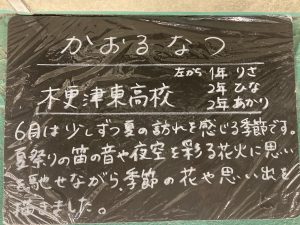 かおるなつ
左から 1年 りさ
木更津東高校 2年 ひな
2年 あかり
6月は少しずつ夏の訪れを感じる季節です。
夏祭りの笛の音や夜空を彩る花火に思い
を馳せながら、季節の花や思い出を
描きました。